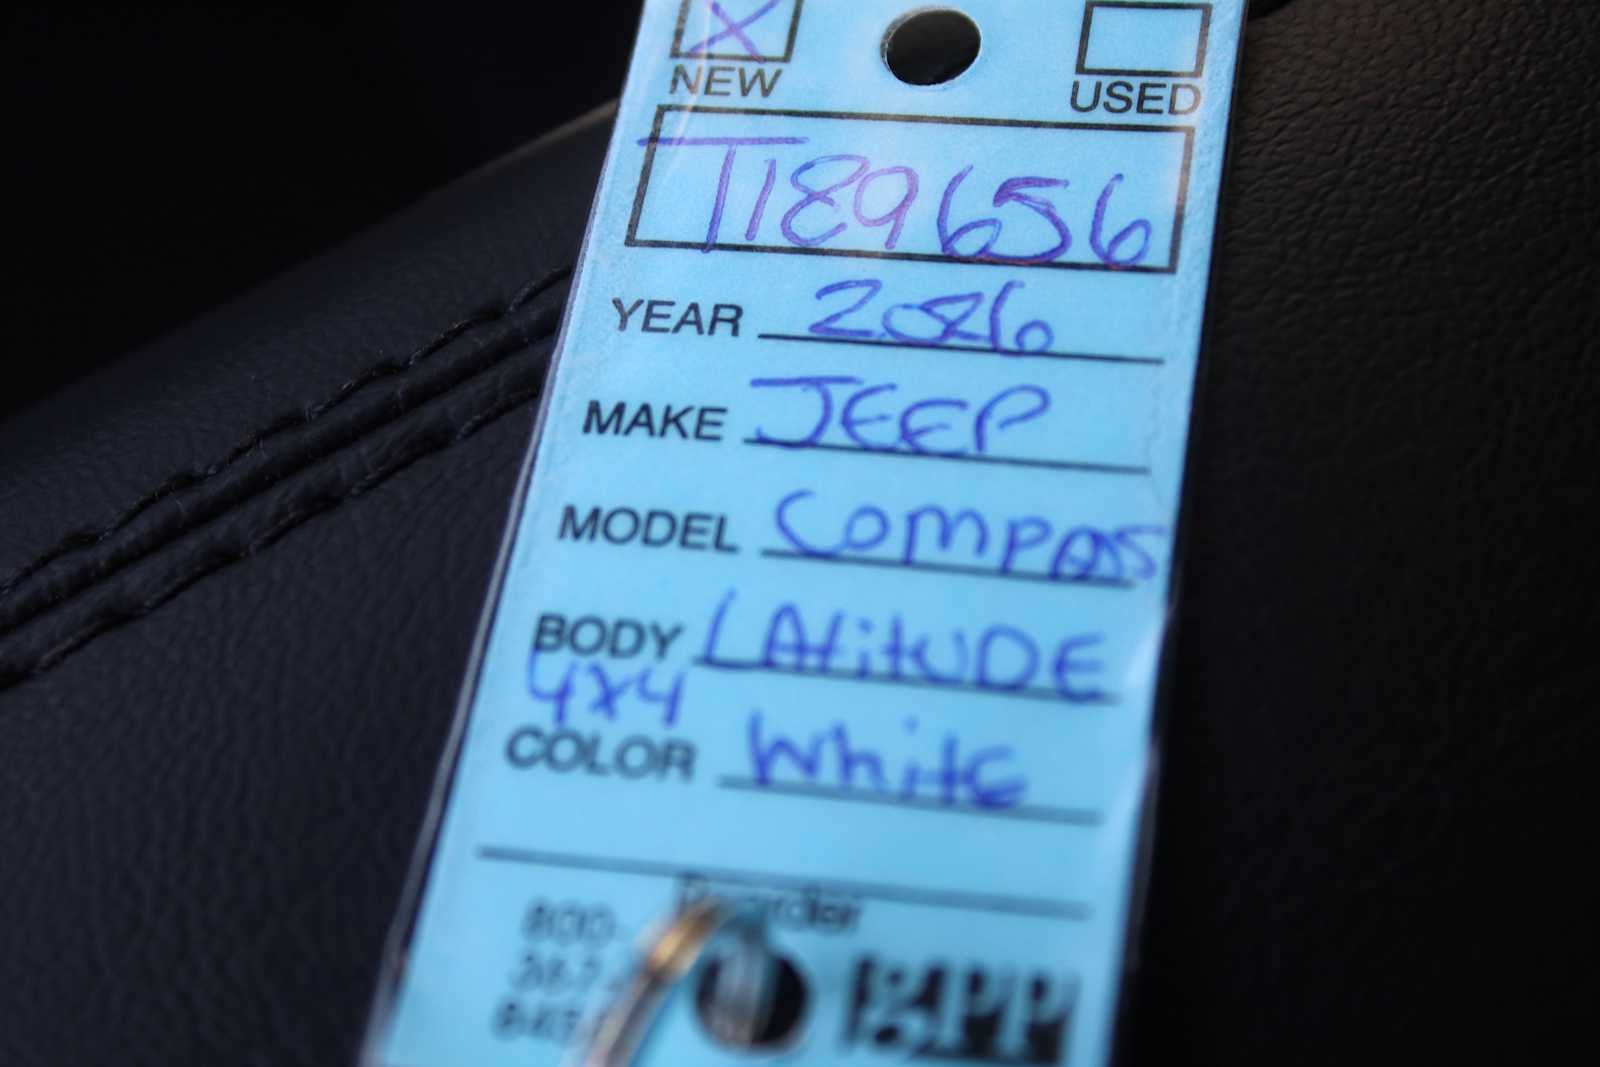 X
NEW USED
T189656
YEAR 2026
MAKE JEEP
MODEL COMPASS
BODY LAtitUDE
4x4
COLOR White
Reorder
800-
267-